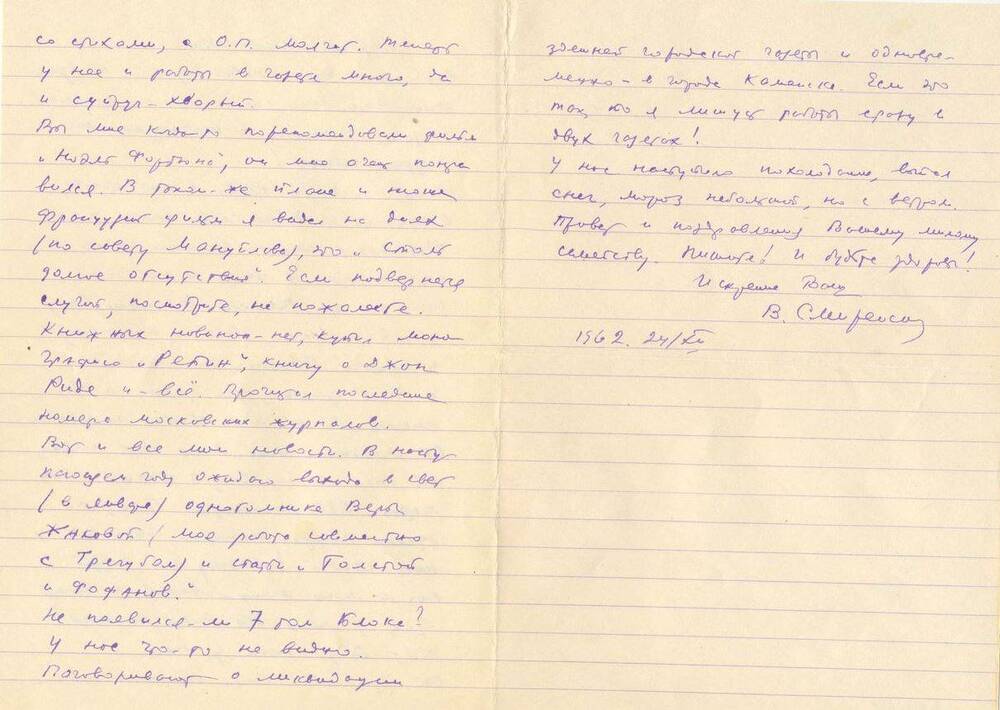 со стихами, а О.П. молчат. Теперь
у нее и работы в газете много, да
и супруг-хворый.
Вы мне когда-то порекомендовали фильм
„Ноэль Фортюна", он мне очень понра
вился. В таком-же плане и
французский фильм я видел на днях
(по совету Мануйлова), это „Столь
долгое отсутствие". Если подвернется
случай, посмотрите, не пожалеете.
Книжных новинок-нет, купил моно
графию „Репин", книгу о Джон
Риде и-всё. Прочитал последние
номера московских журналов.
Вот и все мои новости. В насту
пающем году ожидаю выхода в свет
(в январе) однотомника Веры
Жаковой (моя работа совместно
с Трегубом) и статьи „Толстой
и Фофанов."
Не появился-ли 7 том Блока?
У нас что-то не видно.
Поговаривают о ликвидации
здешней городской газеты и одновре-
менно-в городе Каменске. Если это
так, то я лишусь работы сразу в
двух газетах!
У нас наступило похолодание, выпал
снег, мороз небольшой, но с ветром.
Привет и поздравления Вашему милому
семейству. Пишите! И будьте здоровы!
Искренне Ваш
В. Смиренский
1962. 24/XII